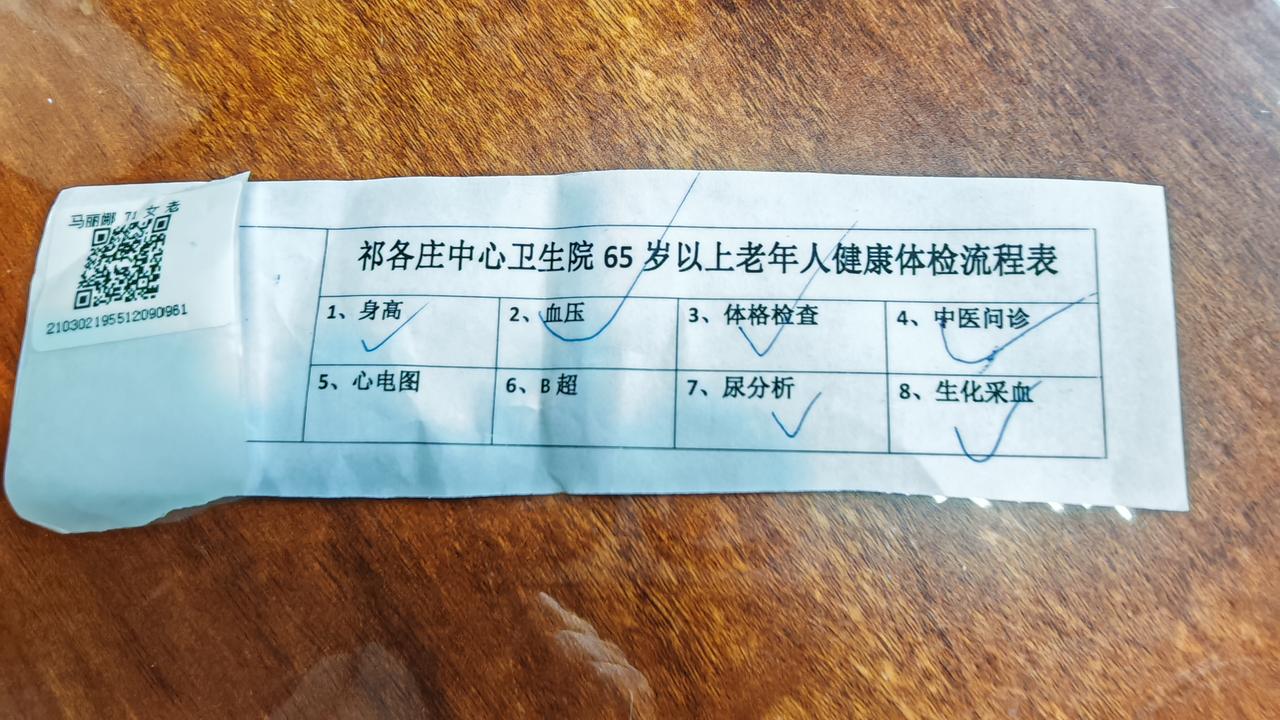 马丽娜 71 女 老
210302195512090961
祁各庄中心卫生院 65 岁以上老年人健康体检流程表
1、身高
2、血压
3、体格检查
4、中医问诊
5、心电图
6、B 超
7、尿分析
8、生化采血